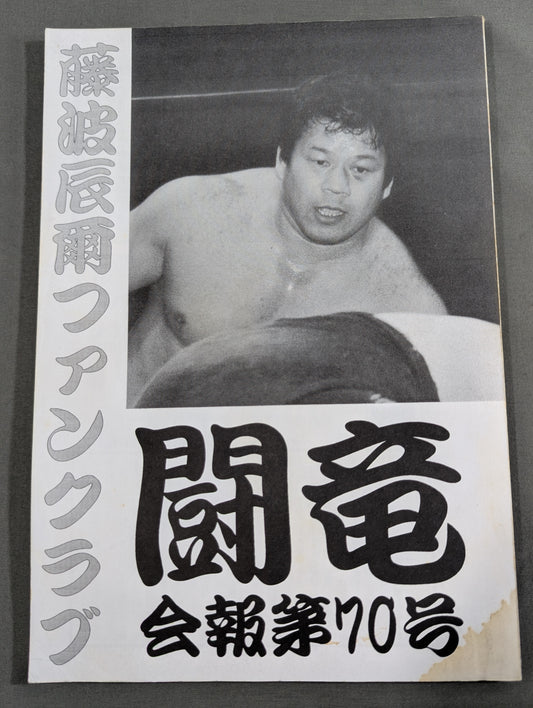 藤波辰爾ファンクラブ
闘竜
会報第70号